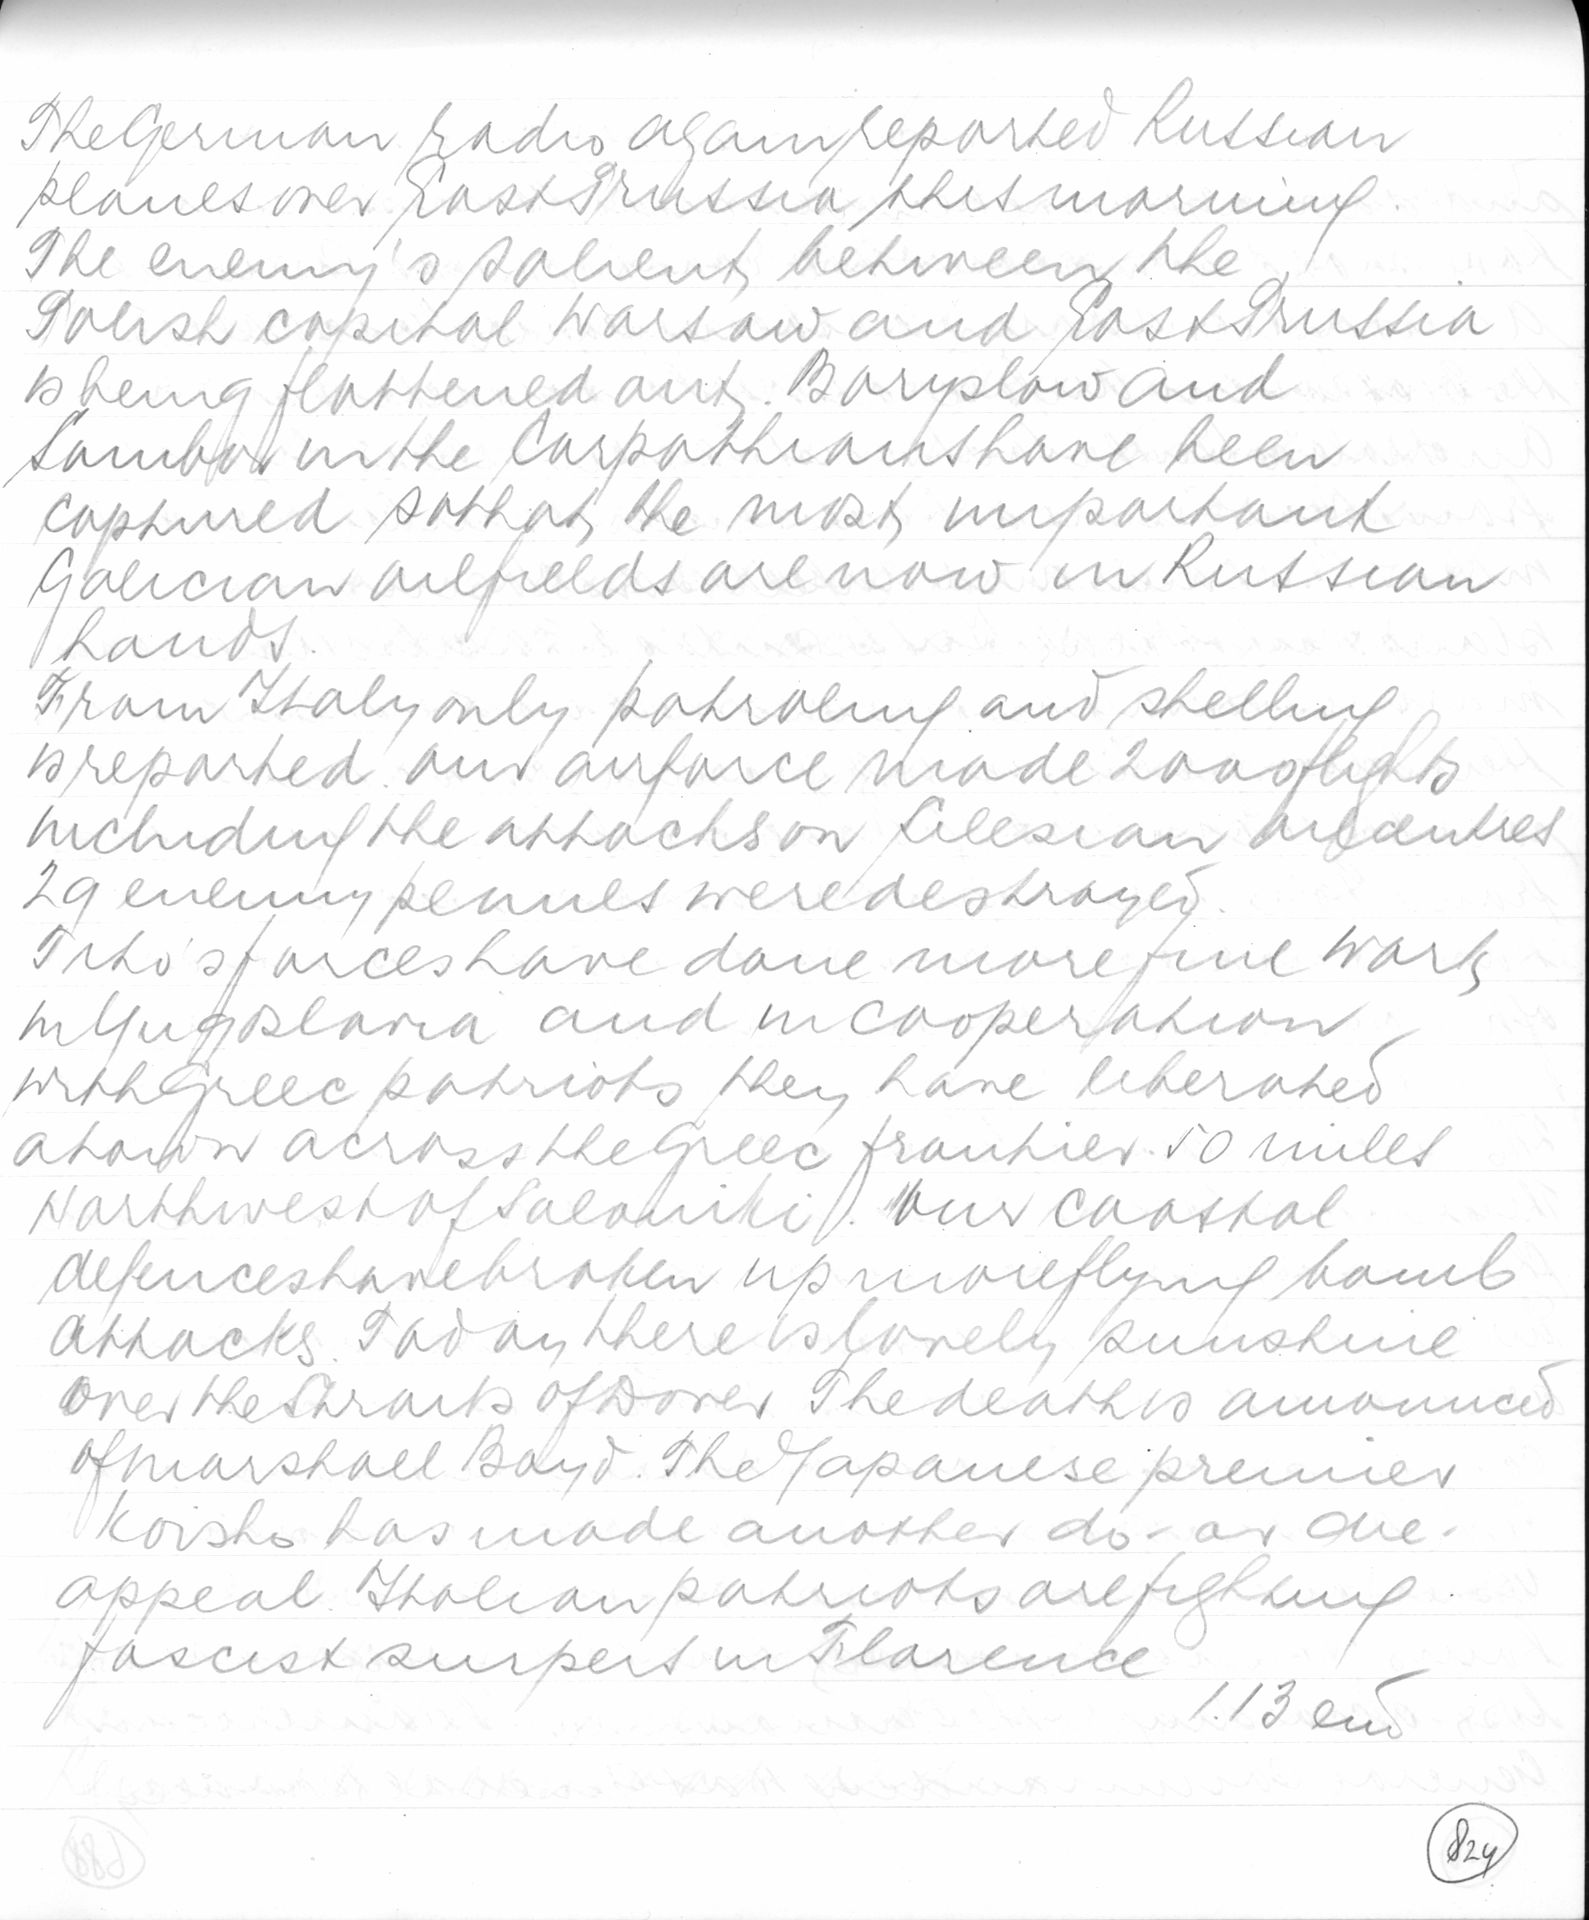 The German radio again reported Russian
planes over East Prussia this morning.
The enemy's salient between the
Polish capital Warsaw and East Prussia
is being flattened out. Boryslow and
Sambor in the Carpathians have been
captured so that the most important
Galician oilfields are now in Russian
hands.
From Italy only patroling and shelling
is reported. our airforce made 2000 flights
including the attacks on Silesian oilcentres
29 enemy pennes were destroyed.
Tito's forces have done more fine work
in Yugoslavia and in cooperation
with Greec patriots they have liberated
a town across the Greec frontier. 50 miles
Northwest of Saloniki. Our coastal
defences have broken up more flying bomb
attacks. Today there is lovely sunshine
over the Straits of Dover The death is announced
of marshall Boyd. The Japanese premier
Koisho has made another do-or die-
appeal. Italian patriots are fighting
fascist snipers in Florence
1.13 end
824